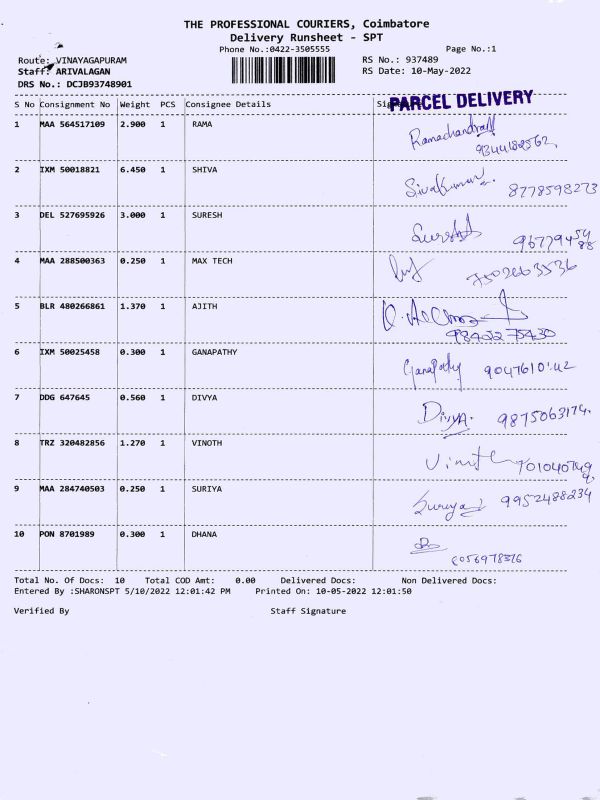 THE PROFESSIONAL COURIERS, Coimbatore
Delivery Runsheet - SPT
Phone No.:0422-3505555 Page No.:1
Route: VINAYAGAPURAM RS No.: 937489
Staff: ARIVALAGAN RS Date: 10-May-2022
DRS No.: DCJB93748901
S No Consignment No Weight PCS Consignee Details
PARCEL DELIVERY
1 MAA 564517109 2.900 1 RAMA
2 IXM 50018821 6.450 1 SHIVA Sivakumar 8778598273
3 DEL 527695926 3.000 1 SURESH
4 MAA 288500363 0.250 1 MAX TECH 7502663536
5 BLR 480266861 1.370 1 AJITH
6 IXM 50025458 0.300 1 GANAPATHY Ganapathy
7 DDG 647645 0.560 1 DIVYA Divya. 9875063174.
8 TRZ 320482856 1.270 1 VINOTH Vinoth
9 MAA 284740503 0.250 1 SURIYA Suriya 9952488234
10 PON 8701989 0.300 1 DHANA
Total No. Of Docs: 10 Total COD Amt: 0.00 Delivered Docs: Non Delivered Docs:
Entered By :SHARONSPT 5/10/2022 12:01:42 PM Printed On: 10-05-2022 12:01:50
Verified By Staff Signature